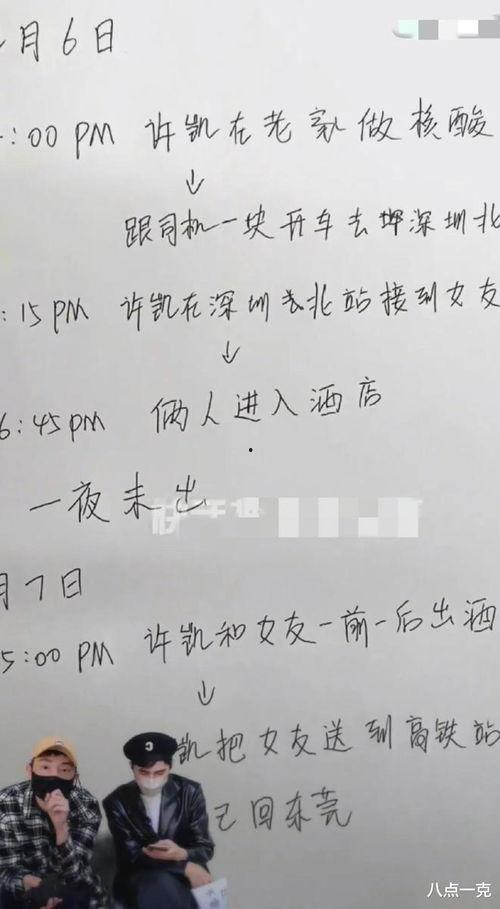 月6日
:00 PM 许凯在老家做核酸
↓
跟司机一块开车去深圳北
:15 PM 许凯在深圳北站接到女友
↓
6:45 PM 俩人进入酒店
一夜未出
月7日
5:00 PM 许凯和女友一前一后出酒
↓
凯把女友送到高铁站
己回东莞
八点一克